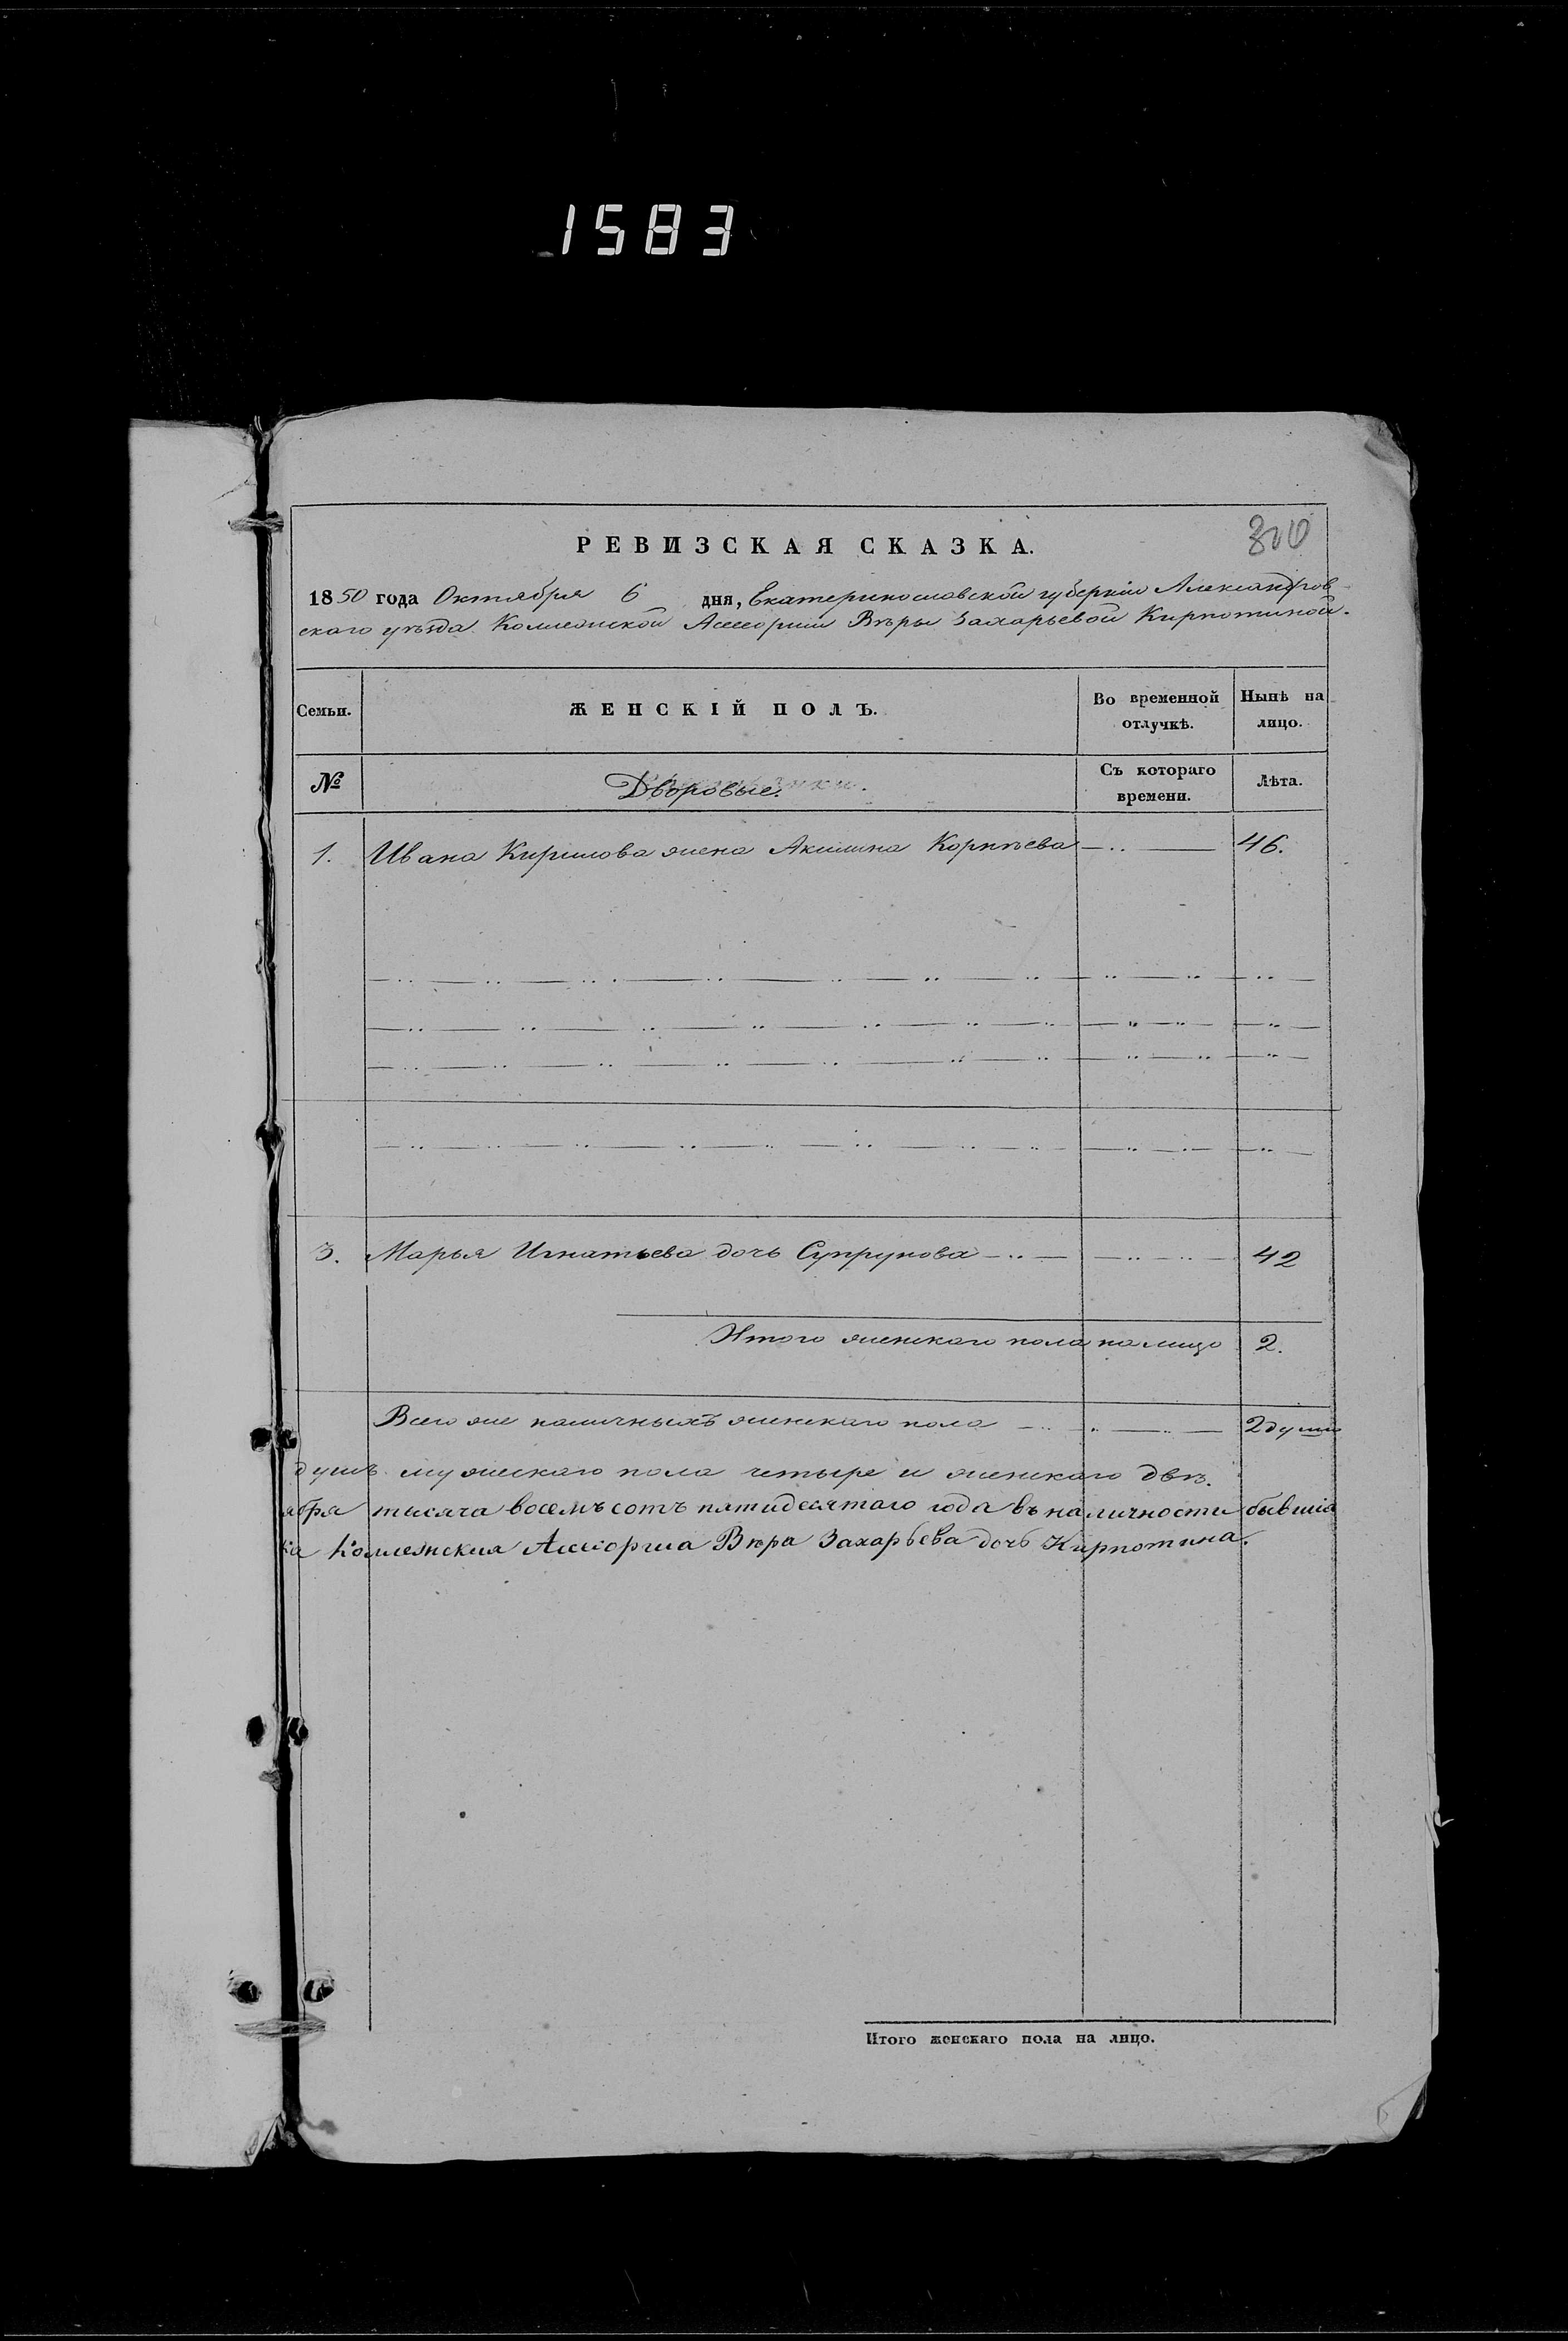 1583
РЕВИЗСКАЯ СКАЗКА.
1850 года Октября 6 дня, Екатеринославской губерніи Александров-
скаго уѣзда Коллежской Ассесорши Вѣры Захарьевой Кирпотиной.
Семьи. ЖЕНСКІЙ ПОЛЪ. Во временной отлучкѣ. Нынѣ на лицо.
№ Дворовые. Съ котораго времени. Лѣта.
1. Ивана Кирилова жена Акилина Корнѣева 46.
3. Марья Игнатьева дочь Супрунова 42
Итого женскаго пола на лицо 2.
Всего же наличныхъ женскаго пола 2 души
душъ мужескаго пола четыре и женскаго двѣ.
ября тысяча восемъсотъ пятидесятаго года въ наличности бывшія
ка Коллежская Ассесорша Вѣра Захарьева дочь Кирпотина.
Итого женскаго пола на лицо.